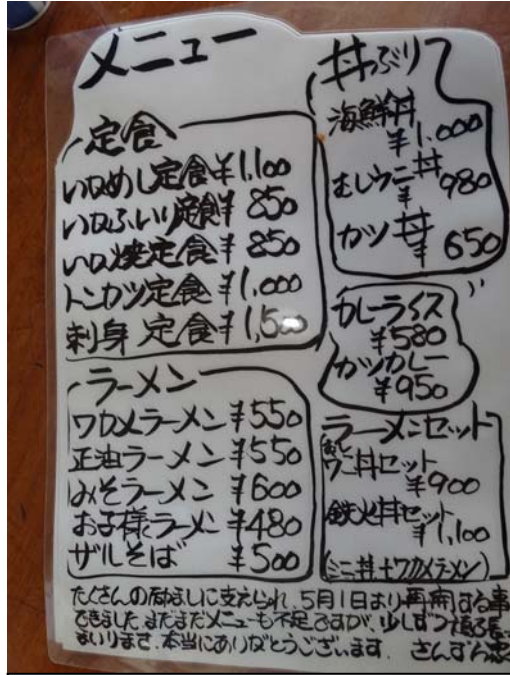 メニュー
定食
いろめし定食 ¥1,100
いろふいり定食 ¥850
いろ焼定食 ¥850
トンカツ定食 ¥1,000
刺身 定食 ¥1,500
ラーメン
ワカメラーメン ¥550
正油ラーメン ¥550
みそラーメン ¥600
お子様ラーメン ¥480
ザルそば ¥500
丼ぶり
海鮮丼
¥1,000
むしウニ丼
¥980
カツ丼
¥650
カレーライス
¥580
カツカレー
¥950
ラーメンセット
むしウニ丼セット
¥900
鉄火丼セット
¥1,100
(ミニ丼+ワカメラーメン)
たくさんの励ましに支えられ、5月1日より再開する事
できました。まだまだメニューも不足ですが、少しずつ頑張って
まいります。本当にありがとうございます。